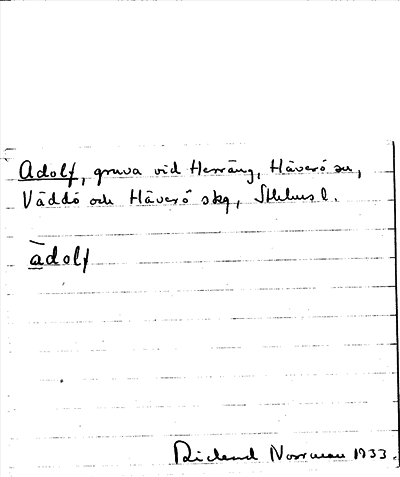 Adolf, gruva vid Herräng, Häverö sn,
Väddö och Häverö skg, Sthlms l.
àdolf
Rickard Norrman 1933.